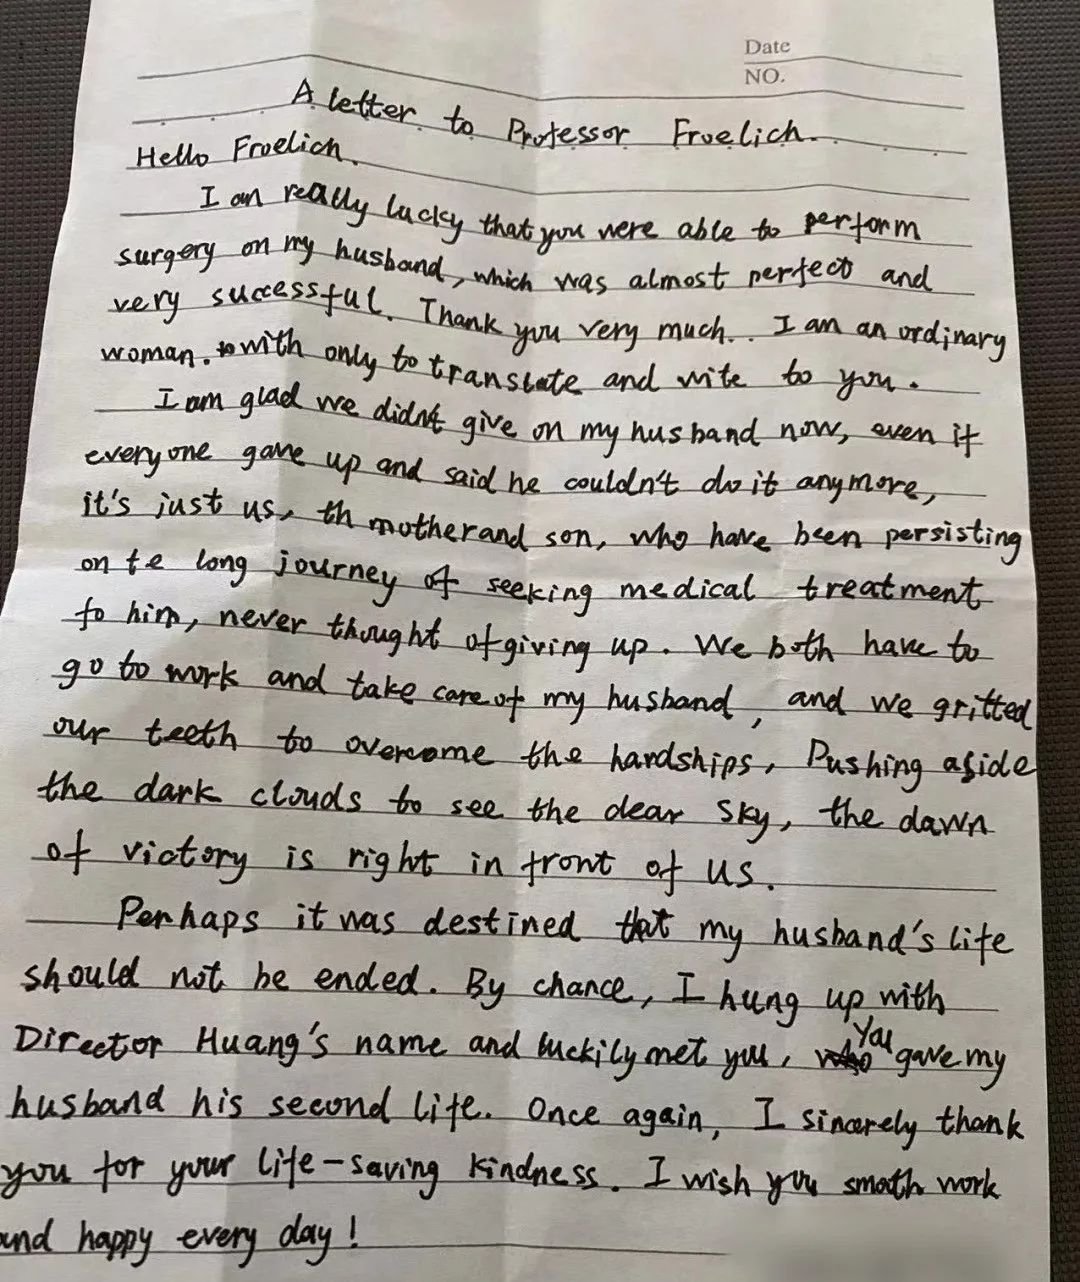 Date
NO.
A letter to Professor Froelich.
Hello Froelich.
I am really lucky that you were able to perform
surgery on my husband, which was almost perfect and
very successful. Thank you very much.. I am an ordinary
woman. with only to translate and write to you.
I am glad we didn't give on my husband now, even if
everyone gave up and said he couldn't do it anymore,
it's just us, th mother and son, who have been persisting
on te long journey of seeking medical treatment
fo him, never thought of giving up. We both have to
go to work and take care of my husband, and we gritted
our teeth to overcome the hardships, Pushing aside
the dark clouds to see the dear sky, the dawn
of victory is right in front of us.
Perhaps it was destined that my husband's life
should not be ended. By chance, I hung up with
Director Huang's name and luckily met you, You gave my
husband his second life. Once again, I sincerely thank
you for your life-saving kindness. I wish you smoth work
and happy every day!